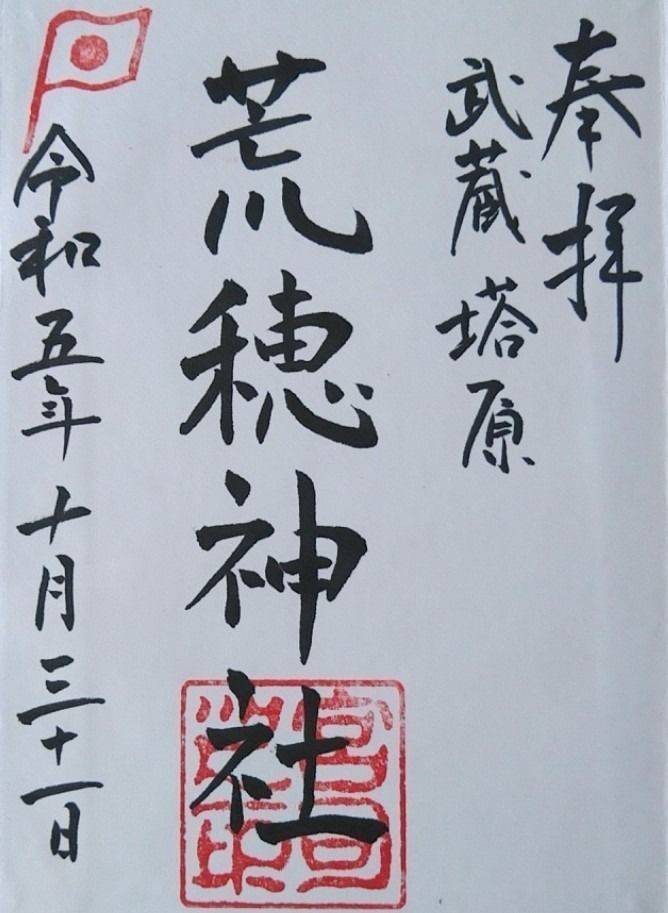 奉拝
武蔵塔原
荒穂神社
令和五年十月三十一日
宮司之印